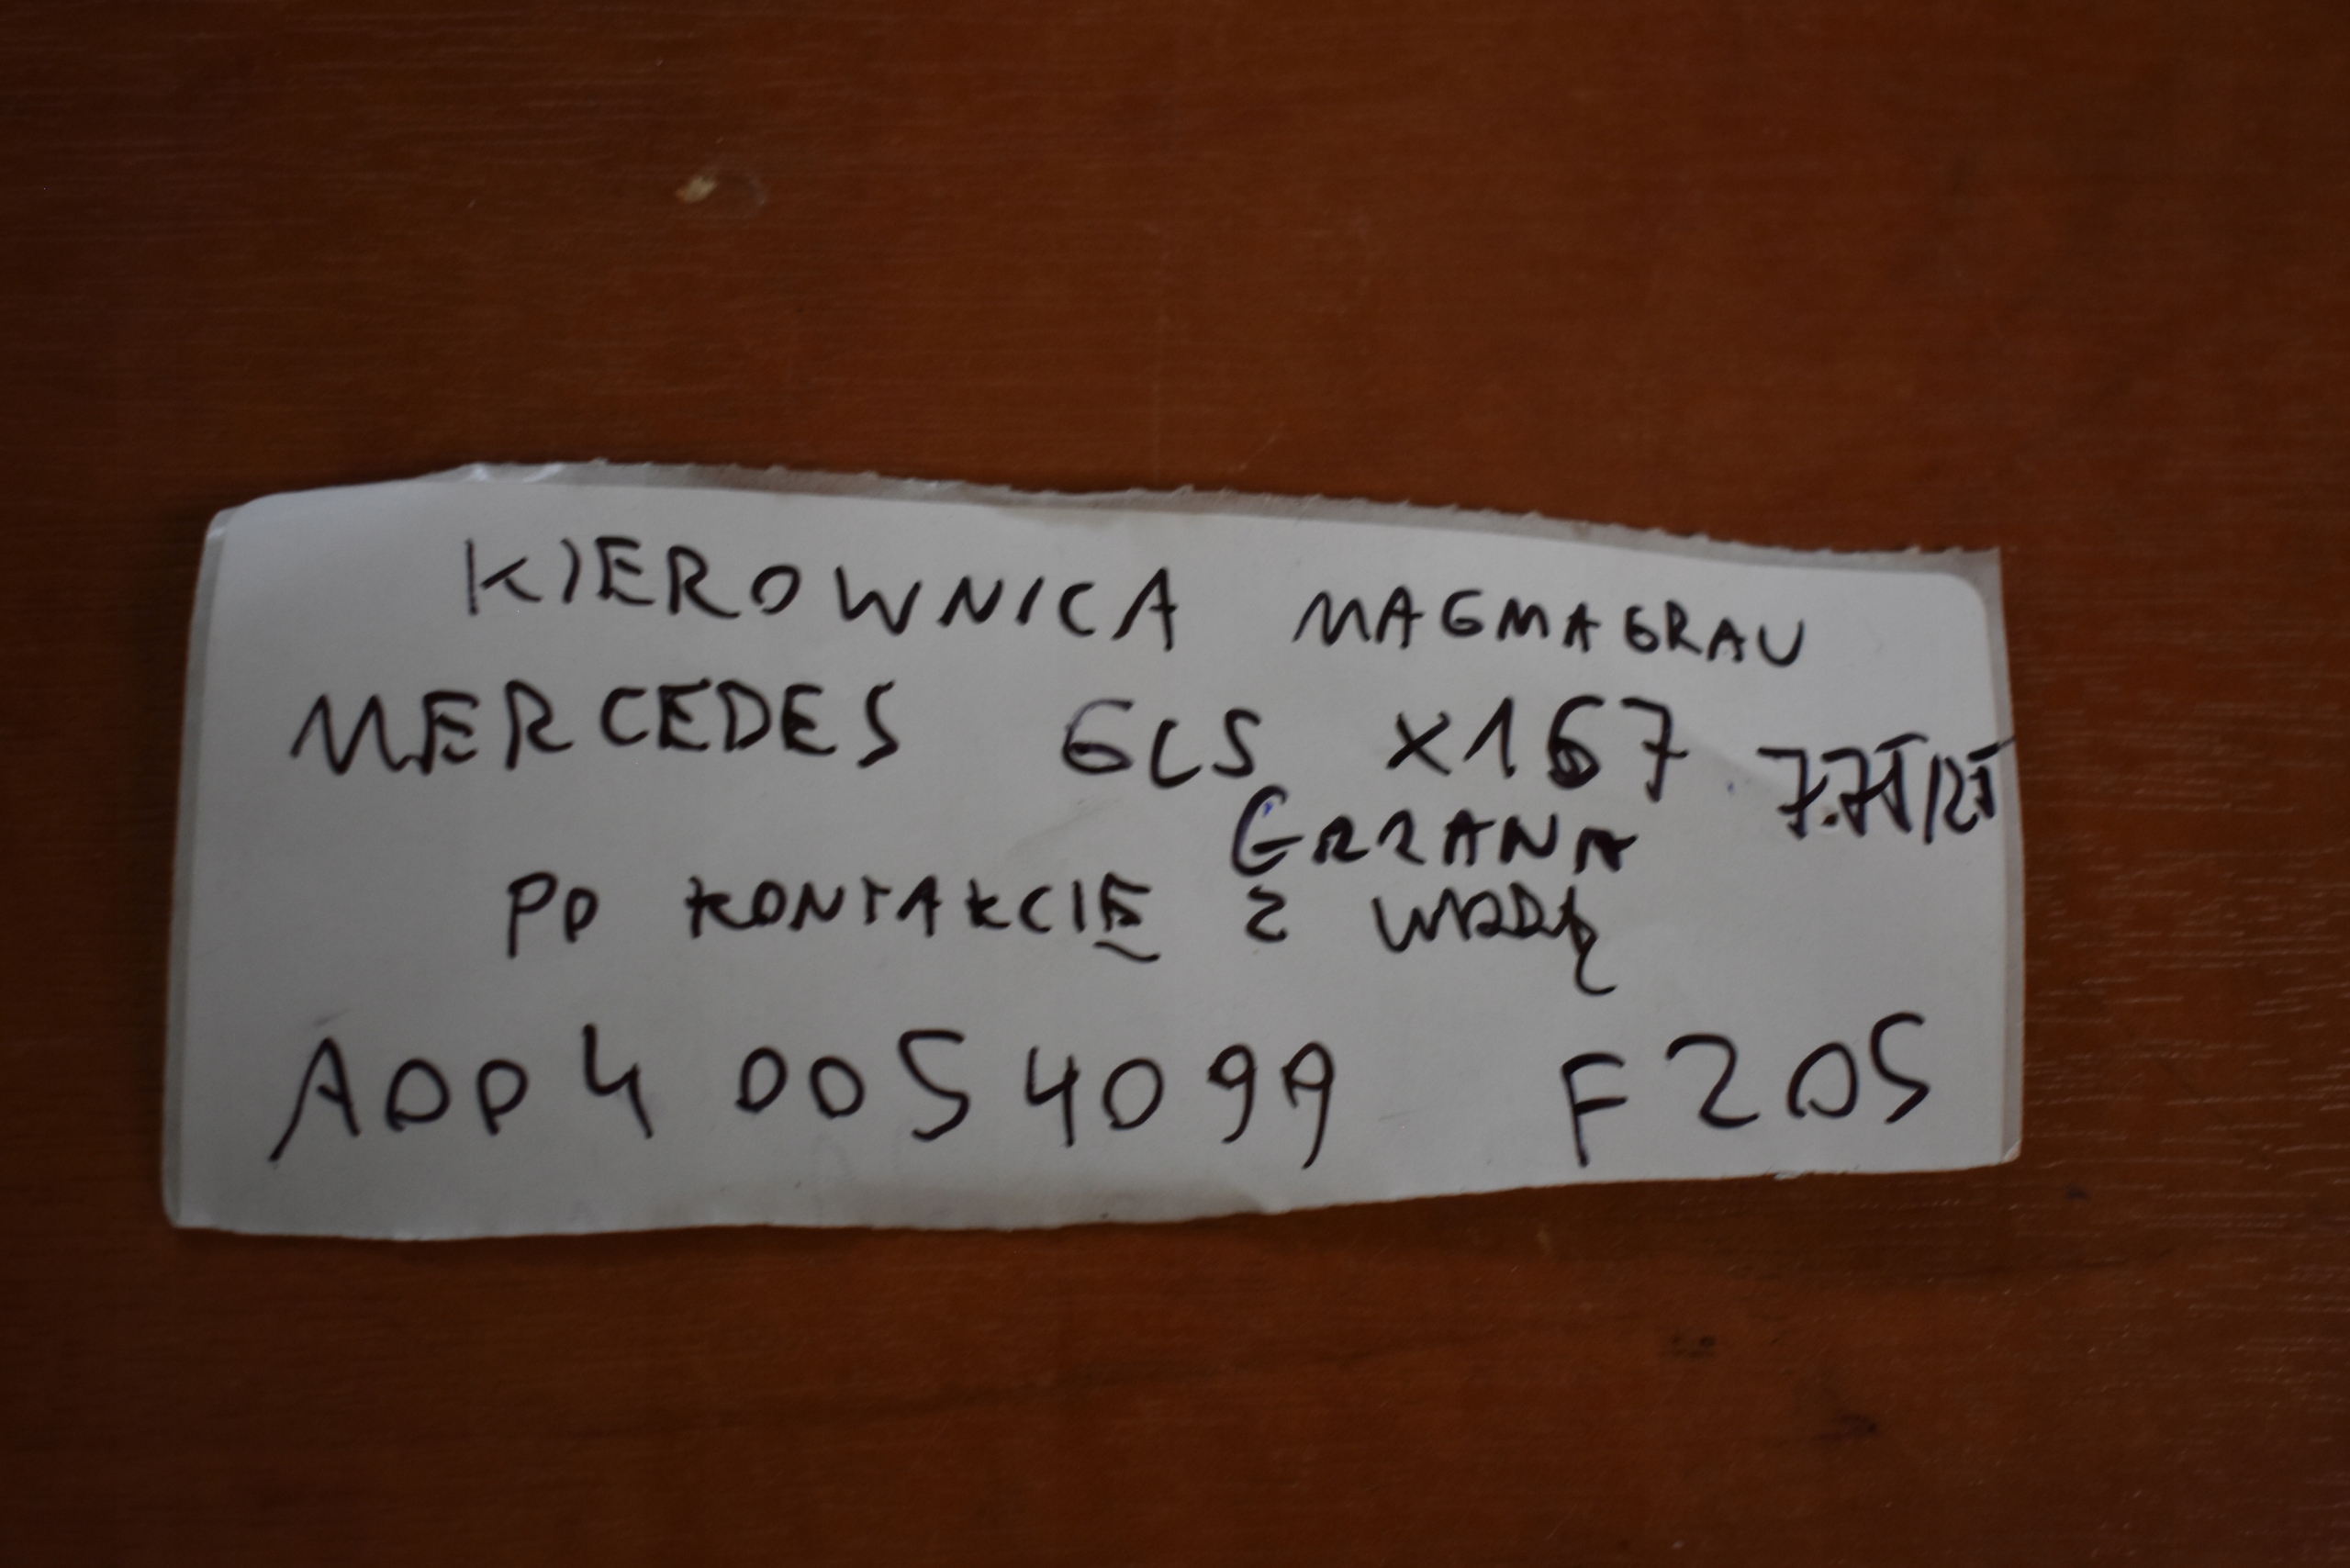 KIEROWNICA MAGMAGRAU
MERCEDES GLS X167
GRZANA
PO KONTAKCIĘ Z WODĄ
A004 005 4099 F205